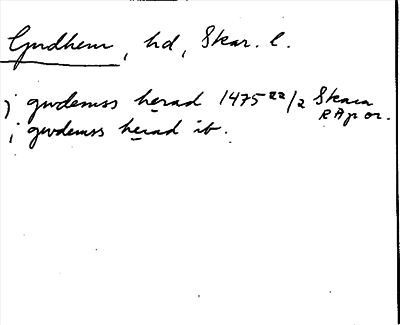 Gudhem, hd, Skar. l.
j gwdemss herad 1475 22/2 Skara
RAp or.
j gwdemss herad ib.